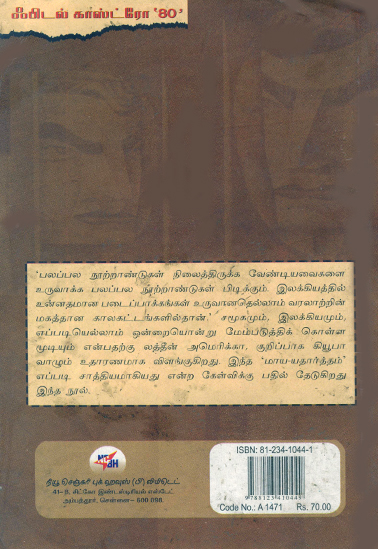 ஃபிடல் காஸ்ட்ரோ '80'
'பலப்பல நூற்றாண்டுகள் நிலைத்திருக்க வேண்டியவைகளை
உருவாக்க பலப்பல நூற்றாண்டுகள் பிடிக்கும். இலக்கியத்தில்
உன்னதமான படைப்பாக்கங்கள் உருவானதெல்லாம் வரலாற்றின்
மகத்தான காலகட்டங்களில்தான்.' சமூகமும், இலக்கியமும்,
எப்படியெல்லாம் ஒன்றையொன்று மேம்படுத்திக் கொள்ள
முடியும் என்பதற்கு லத்தீன் அமெரிக்கா, குறிப்பாக கியூபா
வாழும் உதாரணமாக விளங்குகிறது. இந்த "மாய-யதார்த்தம்"
எப்படி சாத்தியமாகியது என்ற கேள்விக்கு பதில் தேடுகிறது
இந்த நூல்.
நியூ செஞ்சுரி புக் ஹவுஸ் (பி) லிமிடெட்
41-B, சிட்கோ இண்டஸ்டிரியல் எஸ்டேட்
அம்பத்தூர், சென்னை - 600 098.
ISBN: 81-234-1044-1
9 788123 410449
Code No.: A 1471 Rs. 70.00